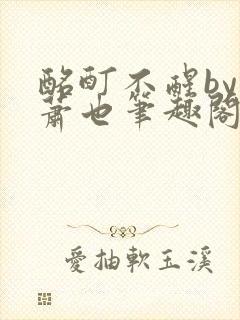 酩酊不醒by
萧也筆趣閣
愛抽軟玉溪